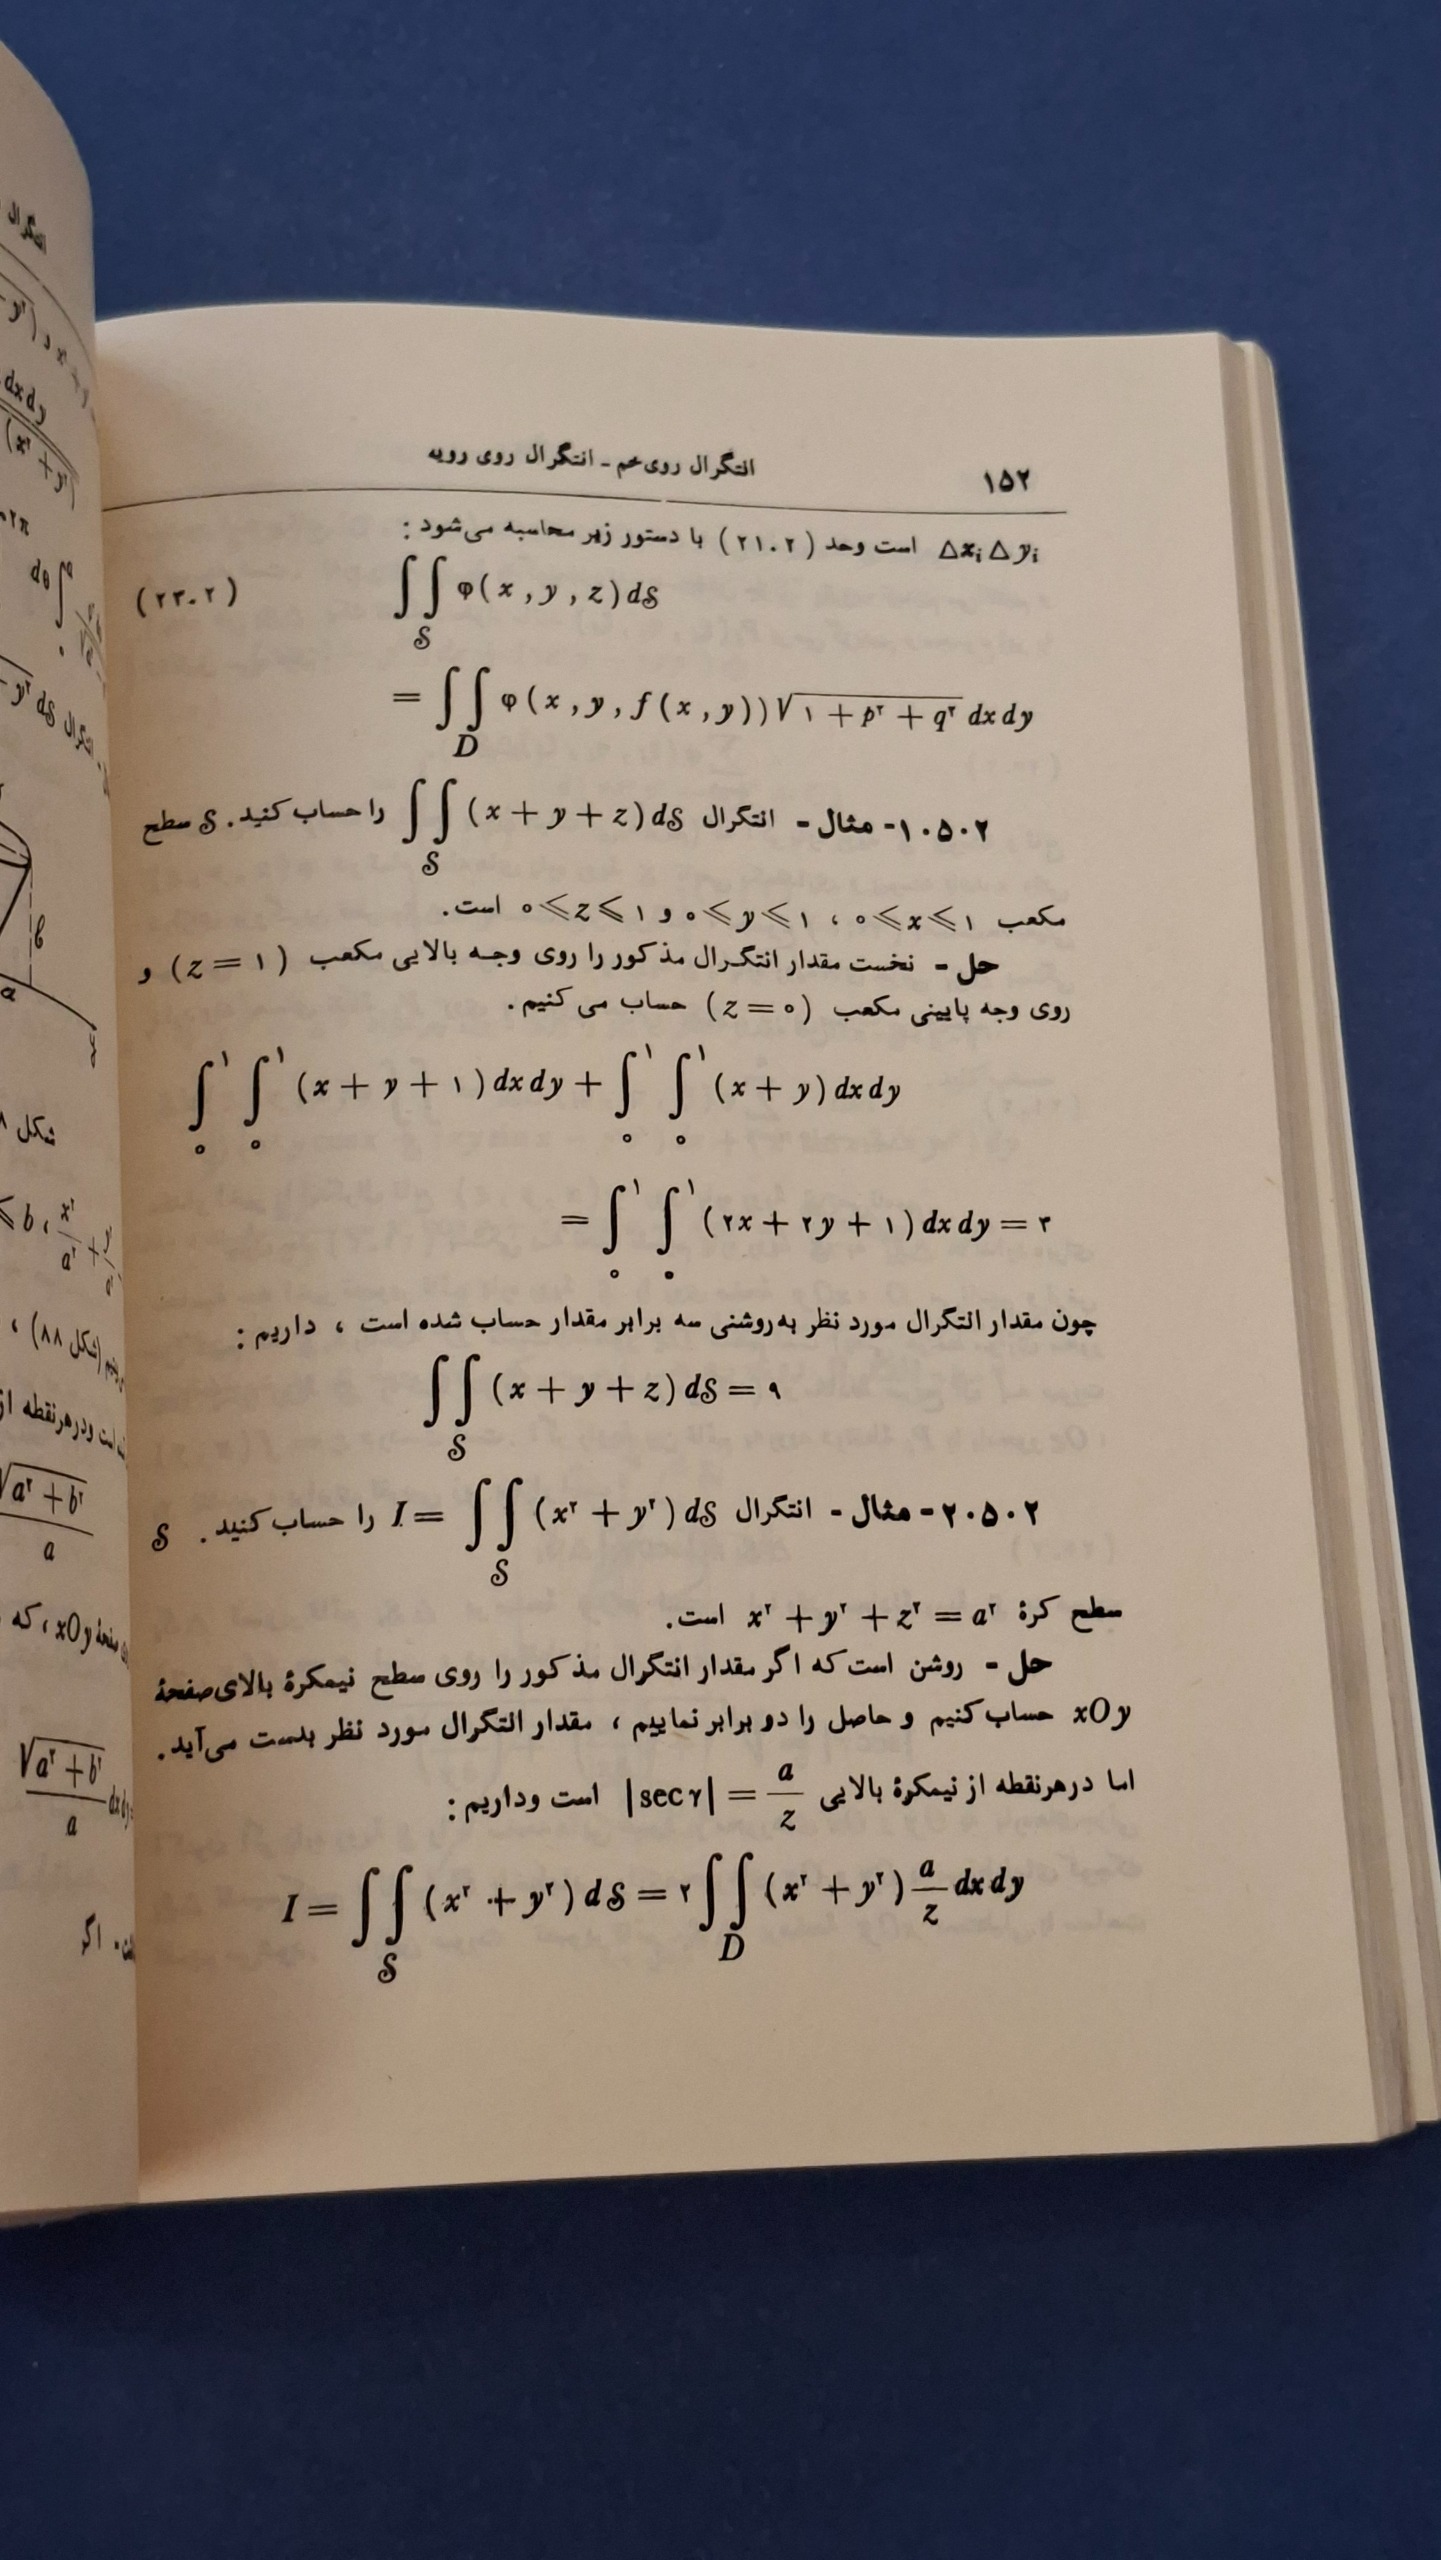 ۱۵۲ انتگرال روی خم ـ انتگرال روی رویه
Δxᵢ Δyᵢ است وحد (۲۱.۲) با دستور زیر محاسبه می‌شود :
(۲۳.۲) ∫∫_S φ(x , y , z) dS
= ∫∫_D φ(x , y , f(x , y)) √(۱ + p۲ + q۲) dx dy
۱.۵.۲- مثال - انتگرال ∫∫_S (x + y + z) dS را حساب کنید. S سطح
مکعب ۰ ⩽ x ⩽ ۱ ، ۰ ⩽ y ⩽ ۱ و ۰ ⩽ z ⩽ ۱ است.
حل - نخست مقدار انتگرال مذکور را روی وجه بالایی مکعب (z = ۱) و
روی وجه پایینی مکعب (z = ۰) حساب می‌کنیم.
∫₀^۱ ∫₀^۱ (x + y + ۱) dx dy + ∫₀^۱ ∫₀^۱ (x + y) dx dy
= ∫₀^۱ ∫₀^۱ (۲x + ۲y + ۱) dx dy = ۳
چون مقدار انتگرال مورد نظر به‌روشنی سه برابر مقدار حساب شده است ، داریم :
∫∫_S (x + y + z) dS = ۹
۲.۵.۲- مثال - انتگرال I = ∫∫_S (x۲ + y۲) dS را حساب کنید. S
سطح کرهٔ x۲ + y۲ + z۲ = a۲ است.
حل - روشن است که اگر مقدار انتگرال مذکور را روی سطح نیمکرهٔ بالای صفحهٔ
xOy حساب کنیم و حاصل را دو برابر نماییم ، مقدار انتگرال مورد نظر بدست می‌آید.
اما درهرنقطه از نیمکرهٔ بالایی |sec γ| = a/z است وداریم :
I = ∫∫_S (x۲ + y۲) dS = ۲ ∫∫_D (x۲ + y۲) a/z dx dy